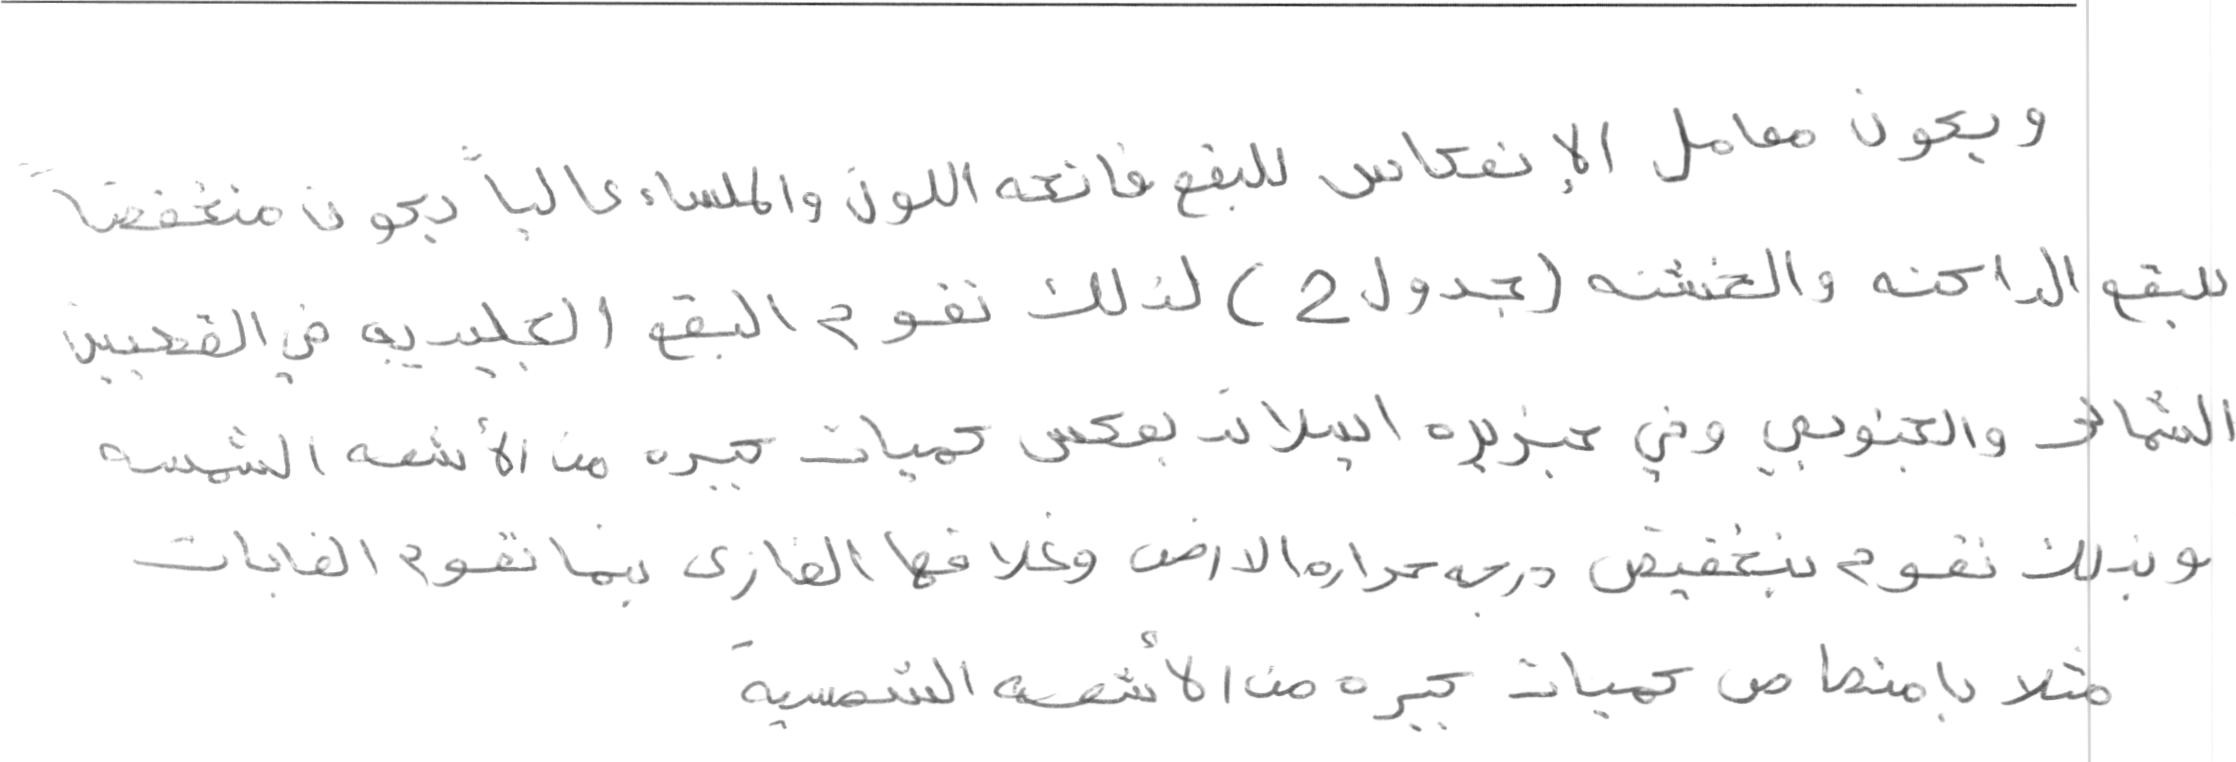 ويكون معامل الإنعكاس للبقع فاتحه اللون والملساء عالياً ويكون منخفضاً
للبقع الداكنه والخشنه (جدول 2) لذلك تقوم البقع الجليديه في القطبين
الشمالي والجنوبي وفي جزيره ايسلاند بعكس كميات كبيره من الأشعه الشمسه
وبذلك تقوم بتخفيض درجه حراره الارض وغلافها الغازى بينما تقوم الغابات
مثلا بامتصاص كميات كبيره من الأشعه الشمسية